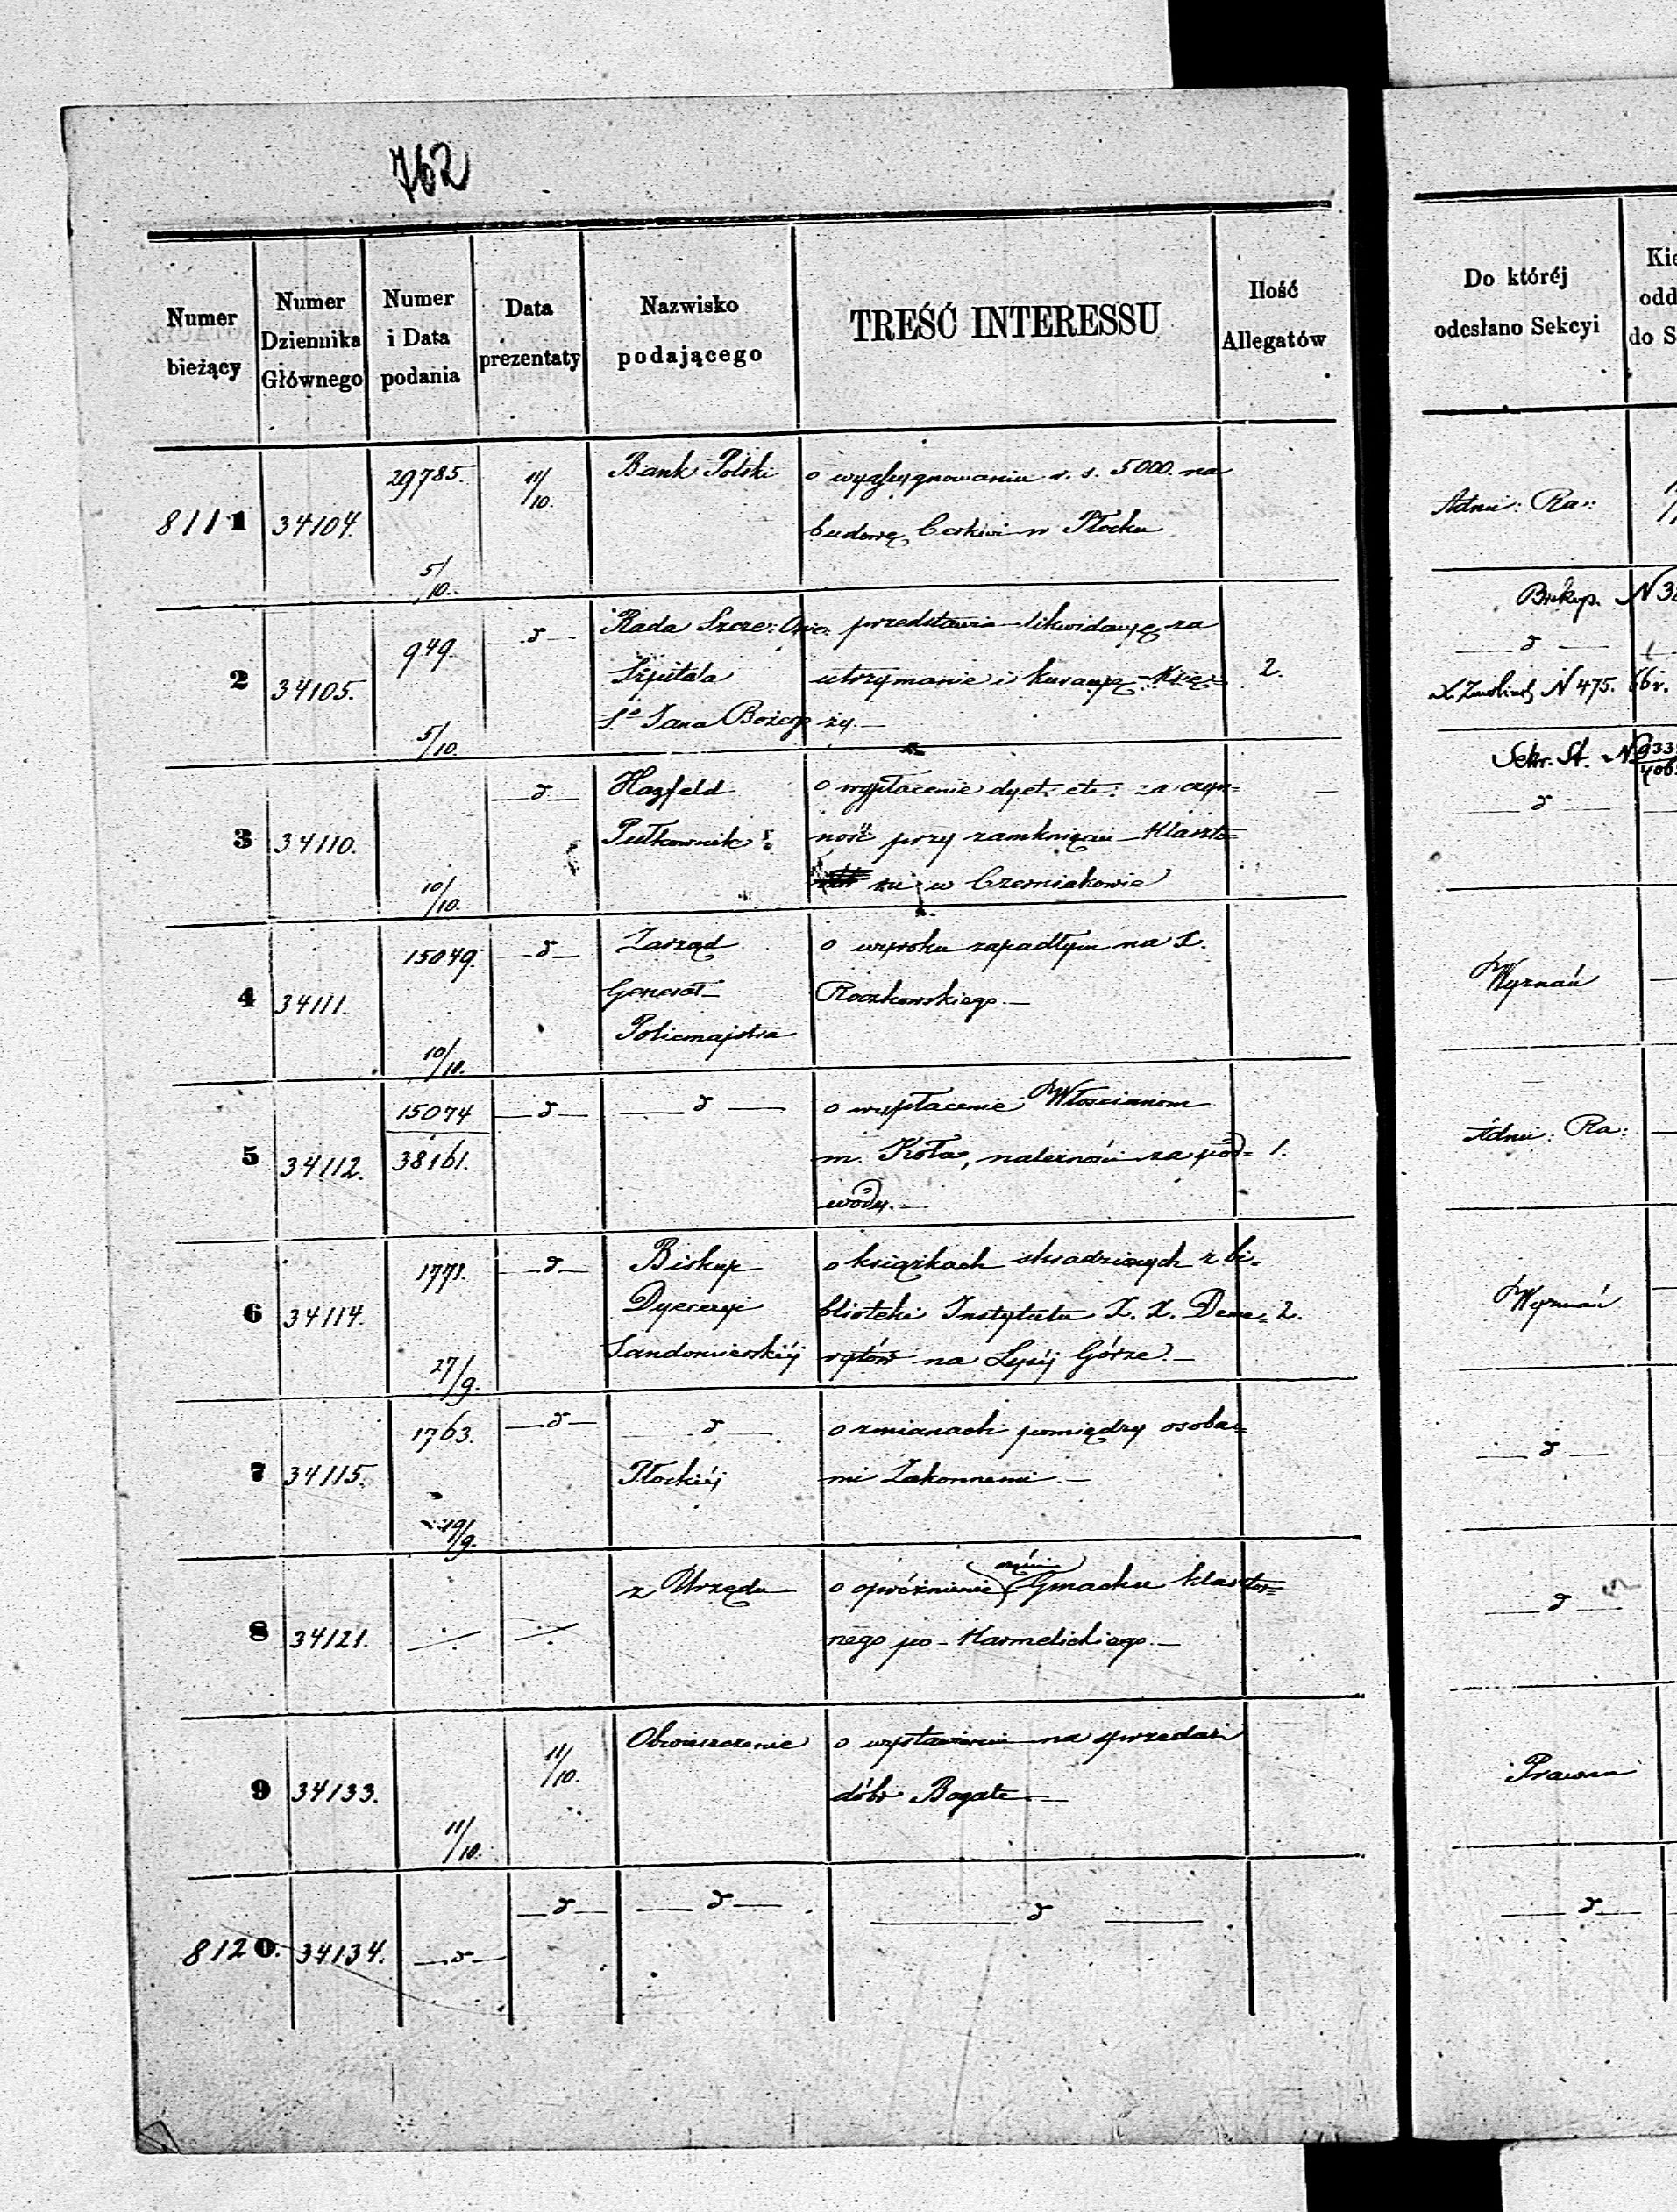 762
Numer bieżący
Numer Dziennika Głównego
Numer i Data podania
Data prezentaty
Nazwisko podającego
TREŚĆ INTERESSU
Ilość Allegatów
Do któréj odesłano Sekcyi
Kie
odd
do S
8111 34104. 29785. 5/10. 11/10. Bank Polski o wyassygnowanie r. s. 5000. na
budowę Cerkwi w Płocku
Admi: Ra:
2 34105. 949. 5/10. d Rada Szcze: Opie: przedstawia likwidacyę za
Szpitala utrzymanie i kuracyę Księ= 2.
S.o Jana Bożego ży.
Biskup. N 38
d
N 475.
3 34110. 10/10. d Hazfeld o wypłacenie dyet. etc: za czyn=
Pułkownik ność przy zamknięciu Klaszto=
ru w Czerniakowie
Sekr. St. N 933
d
4 34111. 15049. 10/10. d Zarząd o wyroku zapadłym na X.
Generał Roczkowskiego.
Policmajstra
Wyznań
5 34112. 15074 38161. d d o wypłacenie Włościanom
m. Koła, należności za pod= 1.
wody.
Admi: Ra:
6 34114. 1771. 27/9. d Biskup o książkach skradzionych z bi=
Dyecezyi blioteki Instytutu X. X. Deme= 2.
Sandomierskiéj rytów na Łyséj Górze.
Wyznań
7 34115. 1763. 19/9. d d o zmianach pomiędzy osoba=
Płockiéj mi Zakonnemi.
d
8 34121. z Urzędu o opróżnienie Gmachu klasztor=
nego po-Karmelickiego.
d
9 34133. 11/10. 11/10. Obwieszczenie o wystawieniu na sprzedaż
dóbr Bogate
Prawna
8120. 34134. d d d d
d